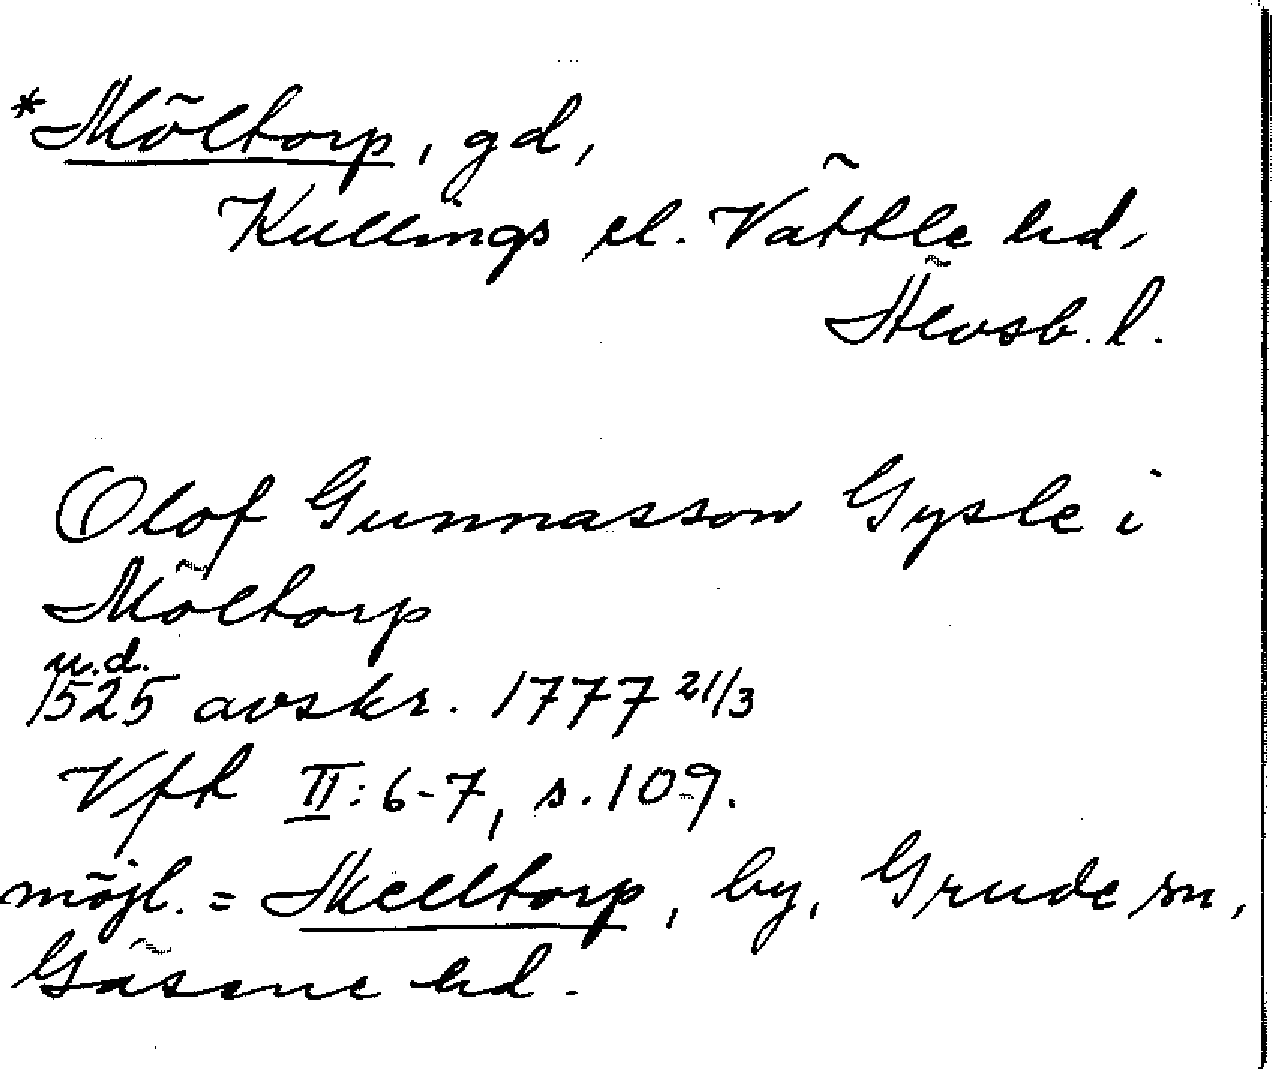 *Möltorp, gd,
Kullings el. Vättle hd,
Älvsb. l.
Olof Gunnasson Gysle i
Möltorp
u.d.
1525 avskr. 1777 21/3
Vfk II: 6-7, s. 109.
möjl. = Melltorp, by, Grude sn,
Gäsene hd.